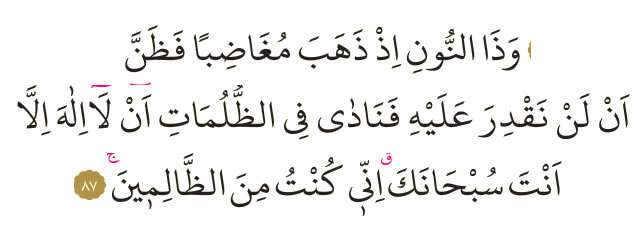 وَذَا النُّونِ اِذْ ذَهَبَ مُغَاضِبًا فَظَنَّ
اَنْ لَنْ نَقْدِرَ عَلَيْهِ فَنَادٰى فِى الظُّلُمَاتِ اَنْ لَٓا اِلٰهَ اِلَّٓا
اَنْتَ سُبْحَانَكَۗ اِنّٖى كُنْتُ مِنَ الظَّالِمٖينَۚ ٨٧